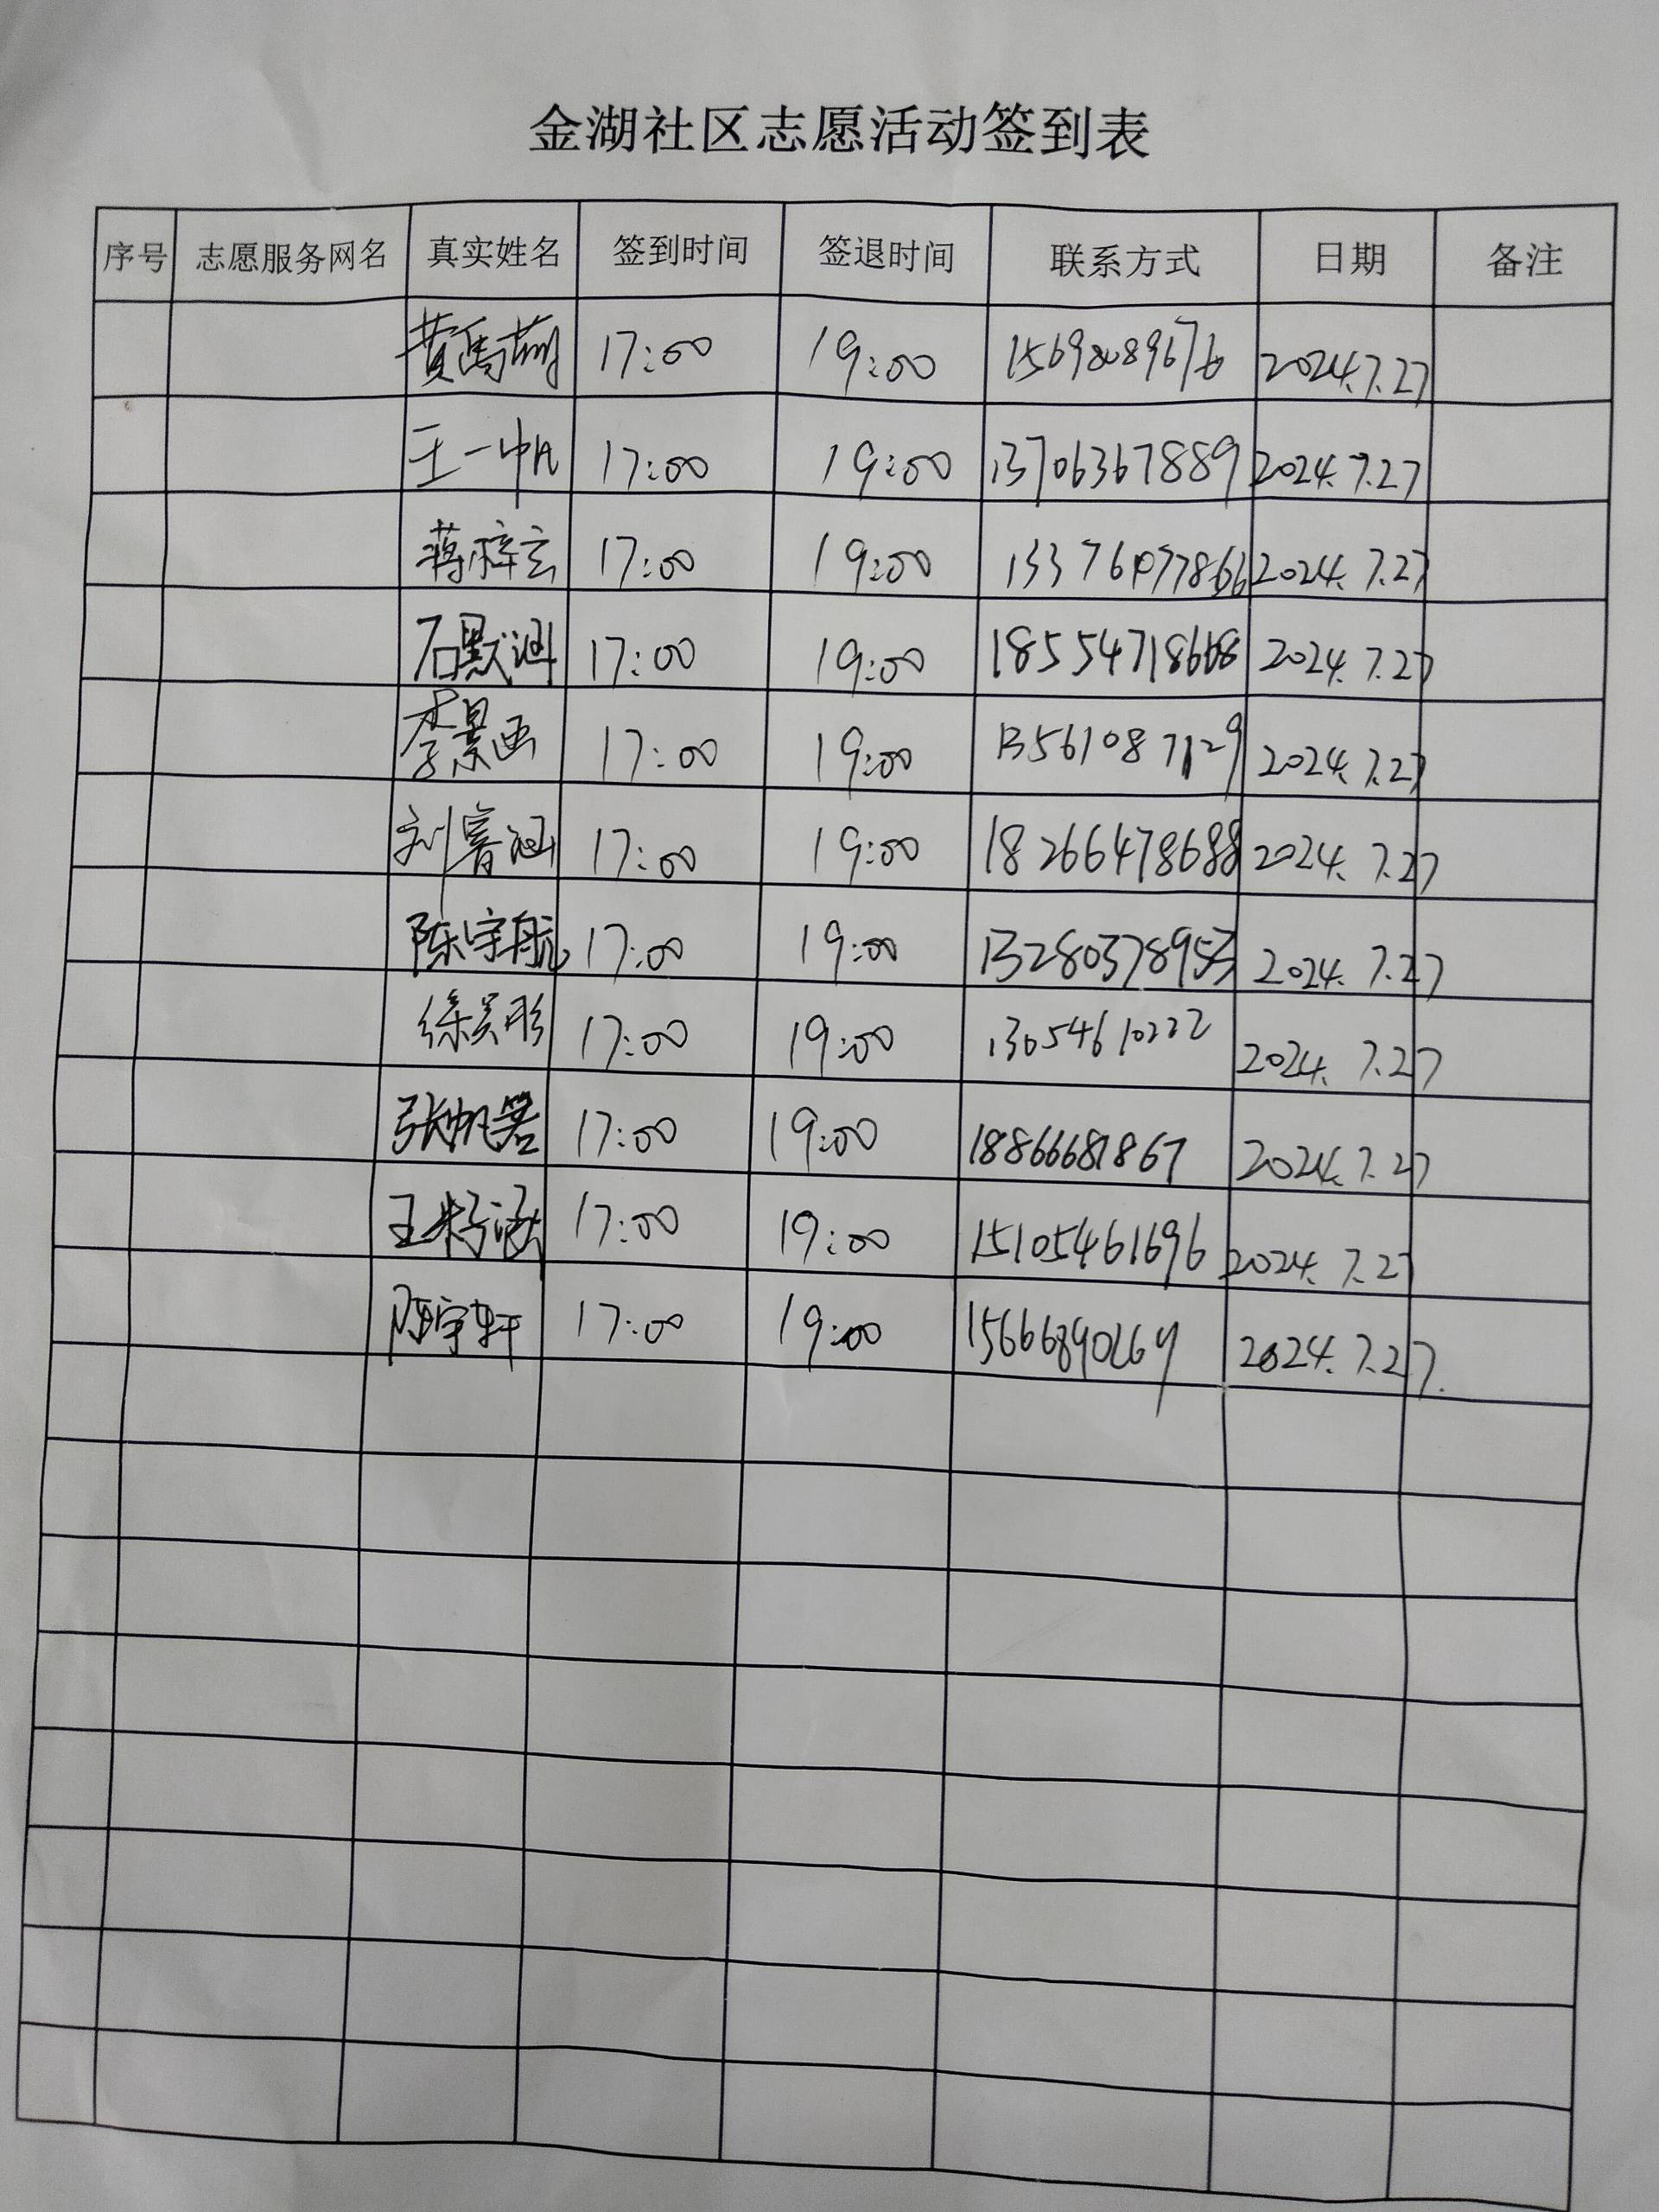 金湖社区志愿活动签到表
序号 志愿服务网名 真实姓名 签到时间 签退时间 联系方式 日期 备注
17:00 19:00 15698089676 2024.7.27
王一帆 17:00 19:00 13706367889 2024.7.27
蒋梓玄 17:00 19:00 2024.7.27
石默涵 17:00 19:00 18554718668 2024.7.27
李景画 17:00 19:00 13561087129 2024.7.27
刘睿涵 17:00 19:00 18266478688 2024.7.27
陈宇航 17:00 19:00 13280378953 2024.7.27
徐昊彤 17:00 19:00 13054610222 2024.7.27
17:00 19:00 18866681867 2024.7.27
王籽涵 17:00 19:00 15105461696 2024.7.27
陈宇轩 17:00 19:00 15666890269 2024.7.27.